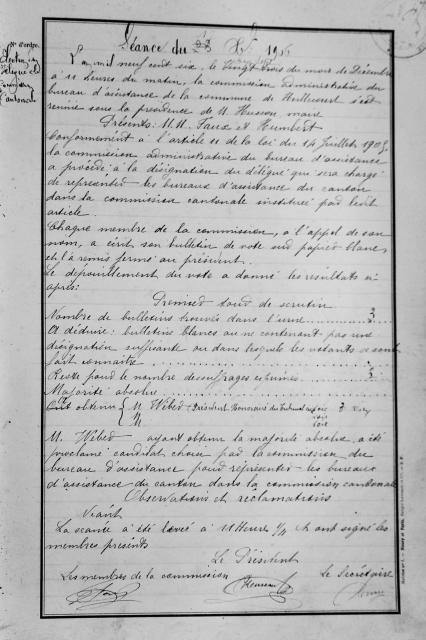 N° d'ordre
Séance du 23 Xbre 1906
L'an mil neuf cent six, le vingt trois du mois de Décembre
à 11 heures du matin, la commission administrative du
bureau d'assistance de la commune de s'est
réunie sous la présidence de M. Husson, maire
Présents: M.M. Faux et Humbert
Conformément à l'article 11 de la loi du 14 Juillet 1905,
la commission administrative du bureau d'assistance
a procédé à la désignation du délégué qui sera chargé
de représenter les bureaux d'assistance du canton
dans la commission cantonale instituée par ledit
article.
Chaque membre de la commission, à l'appel de son
nom, a écrit son bulletin de vote sur papier blanc,
et l'a remis fermé au président.
Le dépouillement du vote a donné les résultats ci-
après:
Premier tour de scrutin
Nombre de bulletins trouvés dans l'urne 3
A déduire: bulletins blancs ou ne contenant pas une
désignation suffisante ou dans lesquels les votants se sont
fait connaitre
Reste pour le nombre des suffrages exprimés 3
Majorité absolue
Ont obtenu { M. Weber Président Honoraire du Tribunal 3 voix
M. Weber ayant obtenu la majorité absolue, a été
proclamé candidat choisi par la commission du
bureau d'assistance pour représenter les bureaux
d'assistance du canton dans la commission cantonale
Observations et réclamations
Néant
La séance a été levée à 11 heures 1/4 & ont signé les
membres présents
Le Président
Les membres de la commission
Le Secrétaire